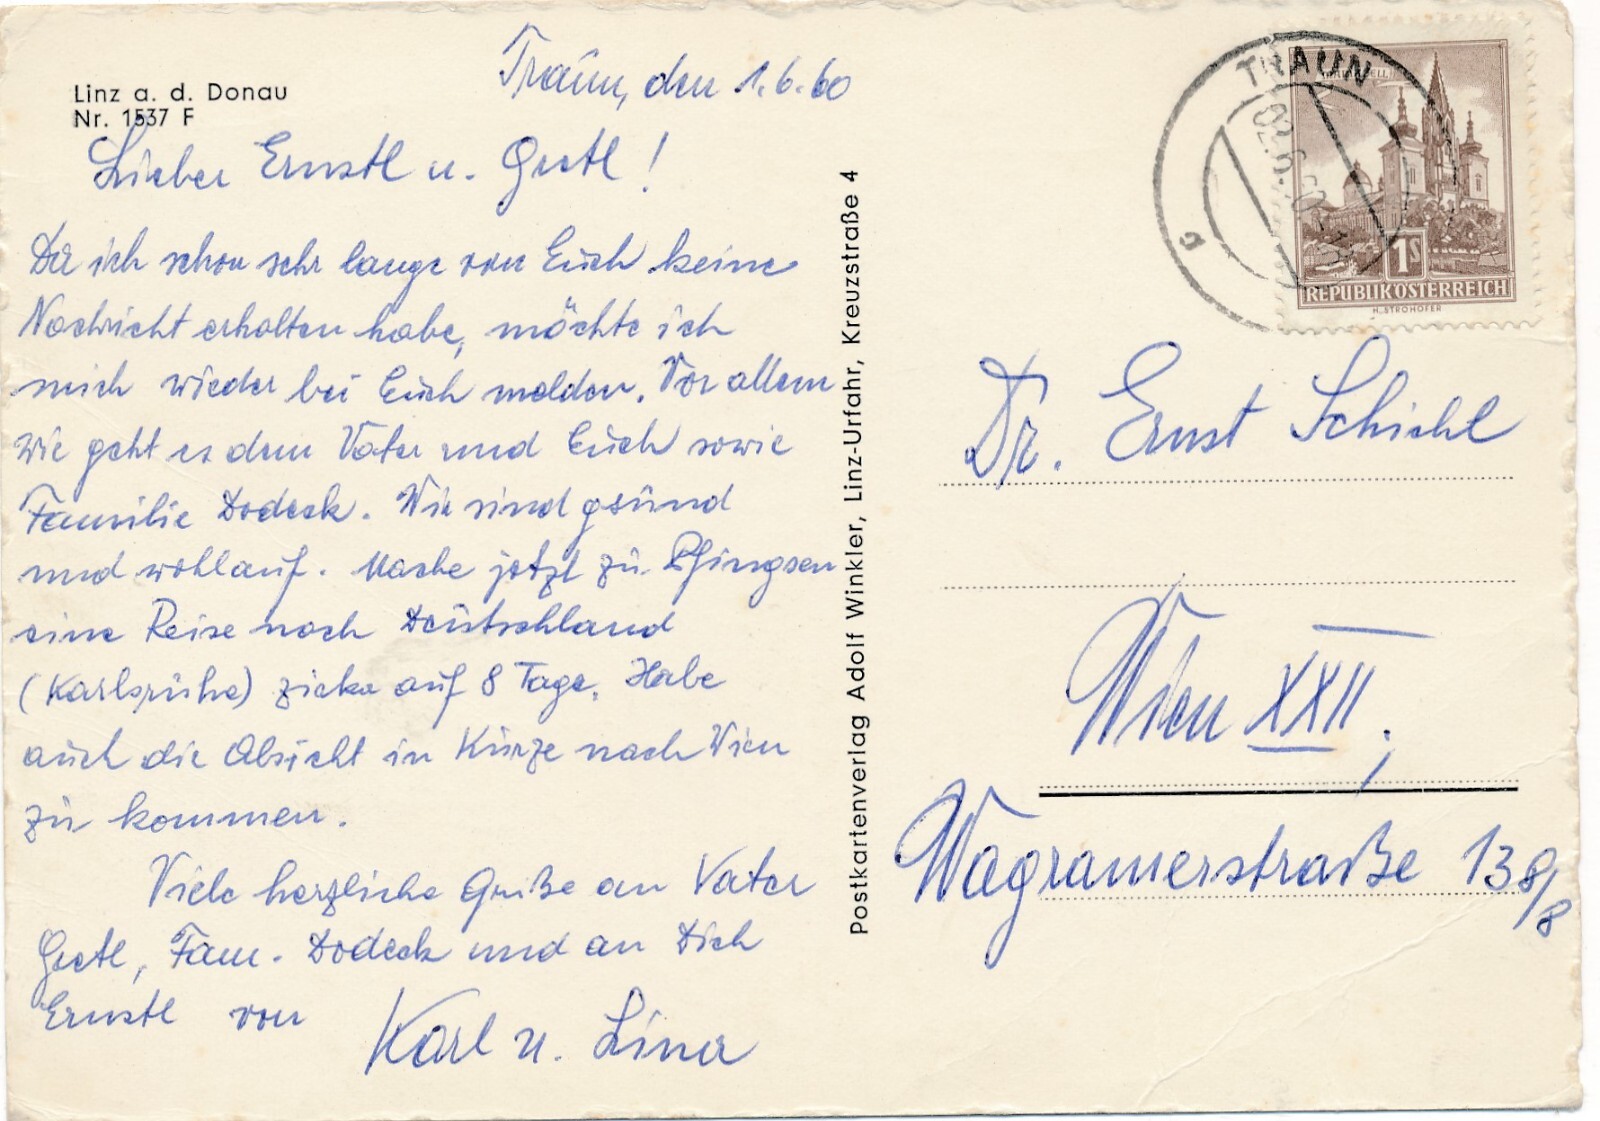 Linz a. d. Donau
Nr. 1537 F
Traun, den 1.6.60
Lieber Ernstl u. Gretl!
Da ich schon sehr lange von Euch keine
Nachricht erhalten habe, möchte ich
mich wieder bei Euch melden. Vor allem
wie geht es dem Vater und Euch sowie
Familie Dodeck. Wir sind gsund
und wohlauf. Mache jetzt zu Pfingsen
eine Reise nach Deutschland
(Karlsruhe) zirka auf 8 Tage. Habe
auch die Absicht in Kürze nach Wien
zu kommen.
Viele herzliche Grüße an Vater
Gretl, Fam. Dodeck und an Dich
Ernstl von
Karl u. Lina
Postkartenverlag Adolf Winkler, Linz-Urfahr, Kreuzstraße 4
TRAUN
a
1S
REPUBLIK ÖSTERREICH
H. STROHOFER
Dr. Ernst Schichl
Wien XXII,
Wagramerstraße 138/8